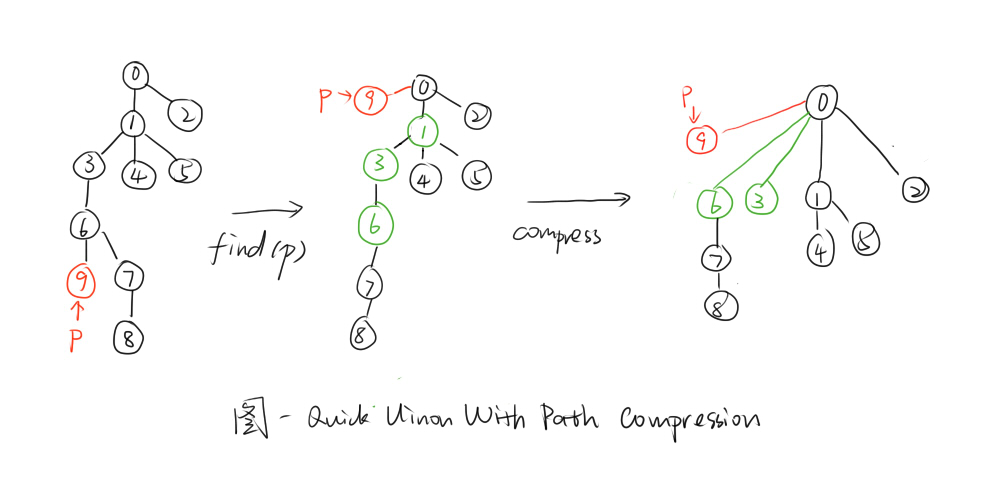 0
1 2
3 4 5
6
9 7
P 8
find(p)
P 9 0
1 2
3 4 5
6
7
8
compress
P 0
9
6 3 1 2
7 4 5
8
图 - Quick Uinon With Path Compression